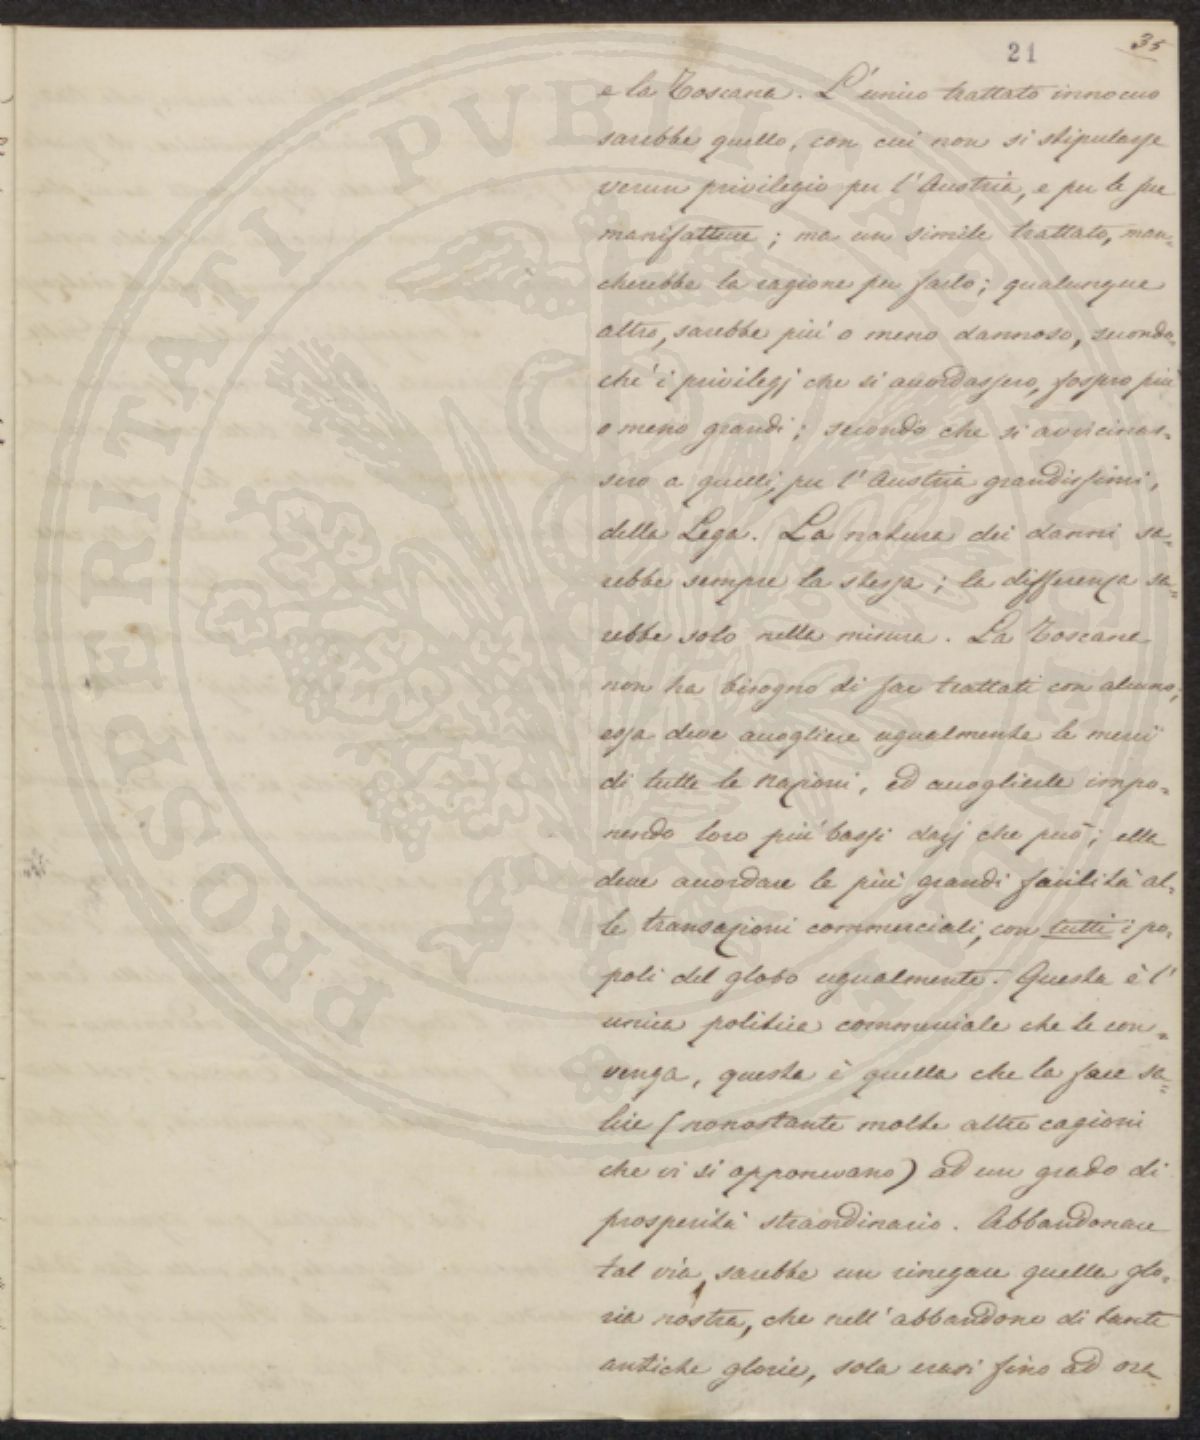 35
21
e la Toscana. L'unico trattato innocuo
sarebbe quello, con cui non si stipulasse
verun privilegio per l'Austria, e per le sue
manifatture; ma un simile trattato, man=
cherebbe la ragione per farlo; qualunque
altro, sarebbe più o meno dannoso, secondo=
chè i privilegj che si accordassero, fossero più
o meno grandi; secondo che si avvicinas=
sero a quelli, per l'Austria grandissimi,
della Lega. La natura dei danni sa=
rebbe sempre la stessa; la differenza sa=
rebbe solo nella misura. La Toscana
non ha bisogno di far trattati con alcuno;
essa deve accogliere ugualmente le merci
di tutte le nazioni, ed accoglierle impo=
nendo loro più bassi dazj che può; ella
deve accordare le più grandi facilità al=
le transazioni commerciali, con tutti i po=
poli del globo ugualmente. Questa è l'
unica politica commerciale che le con=
venga, questa è quella che la fece sa=
lire (nonostante molte altre cagioni
che vi si opponevano) ad un grado di
prosperità straordinario. Abbandonare
tal via, sarebbe un rinegare quella glo=
ria nostra, che nell'abbandono di tante
antiche glorie, sola erasi fino ad ora
PROSPERITATI PUBLICAE AUGENDAE